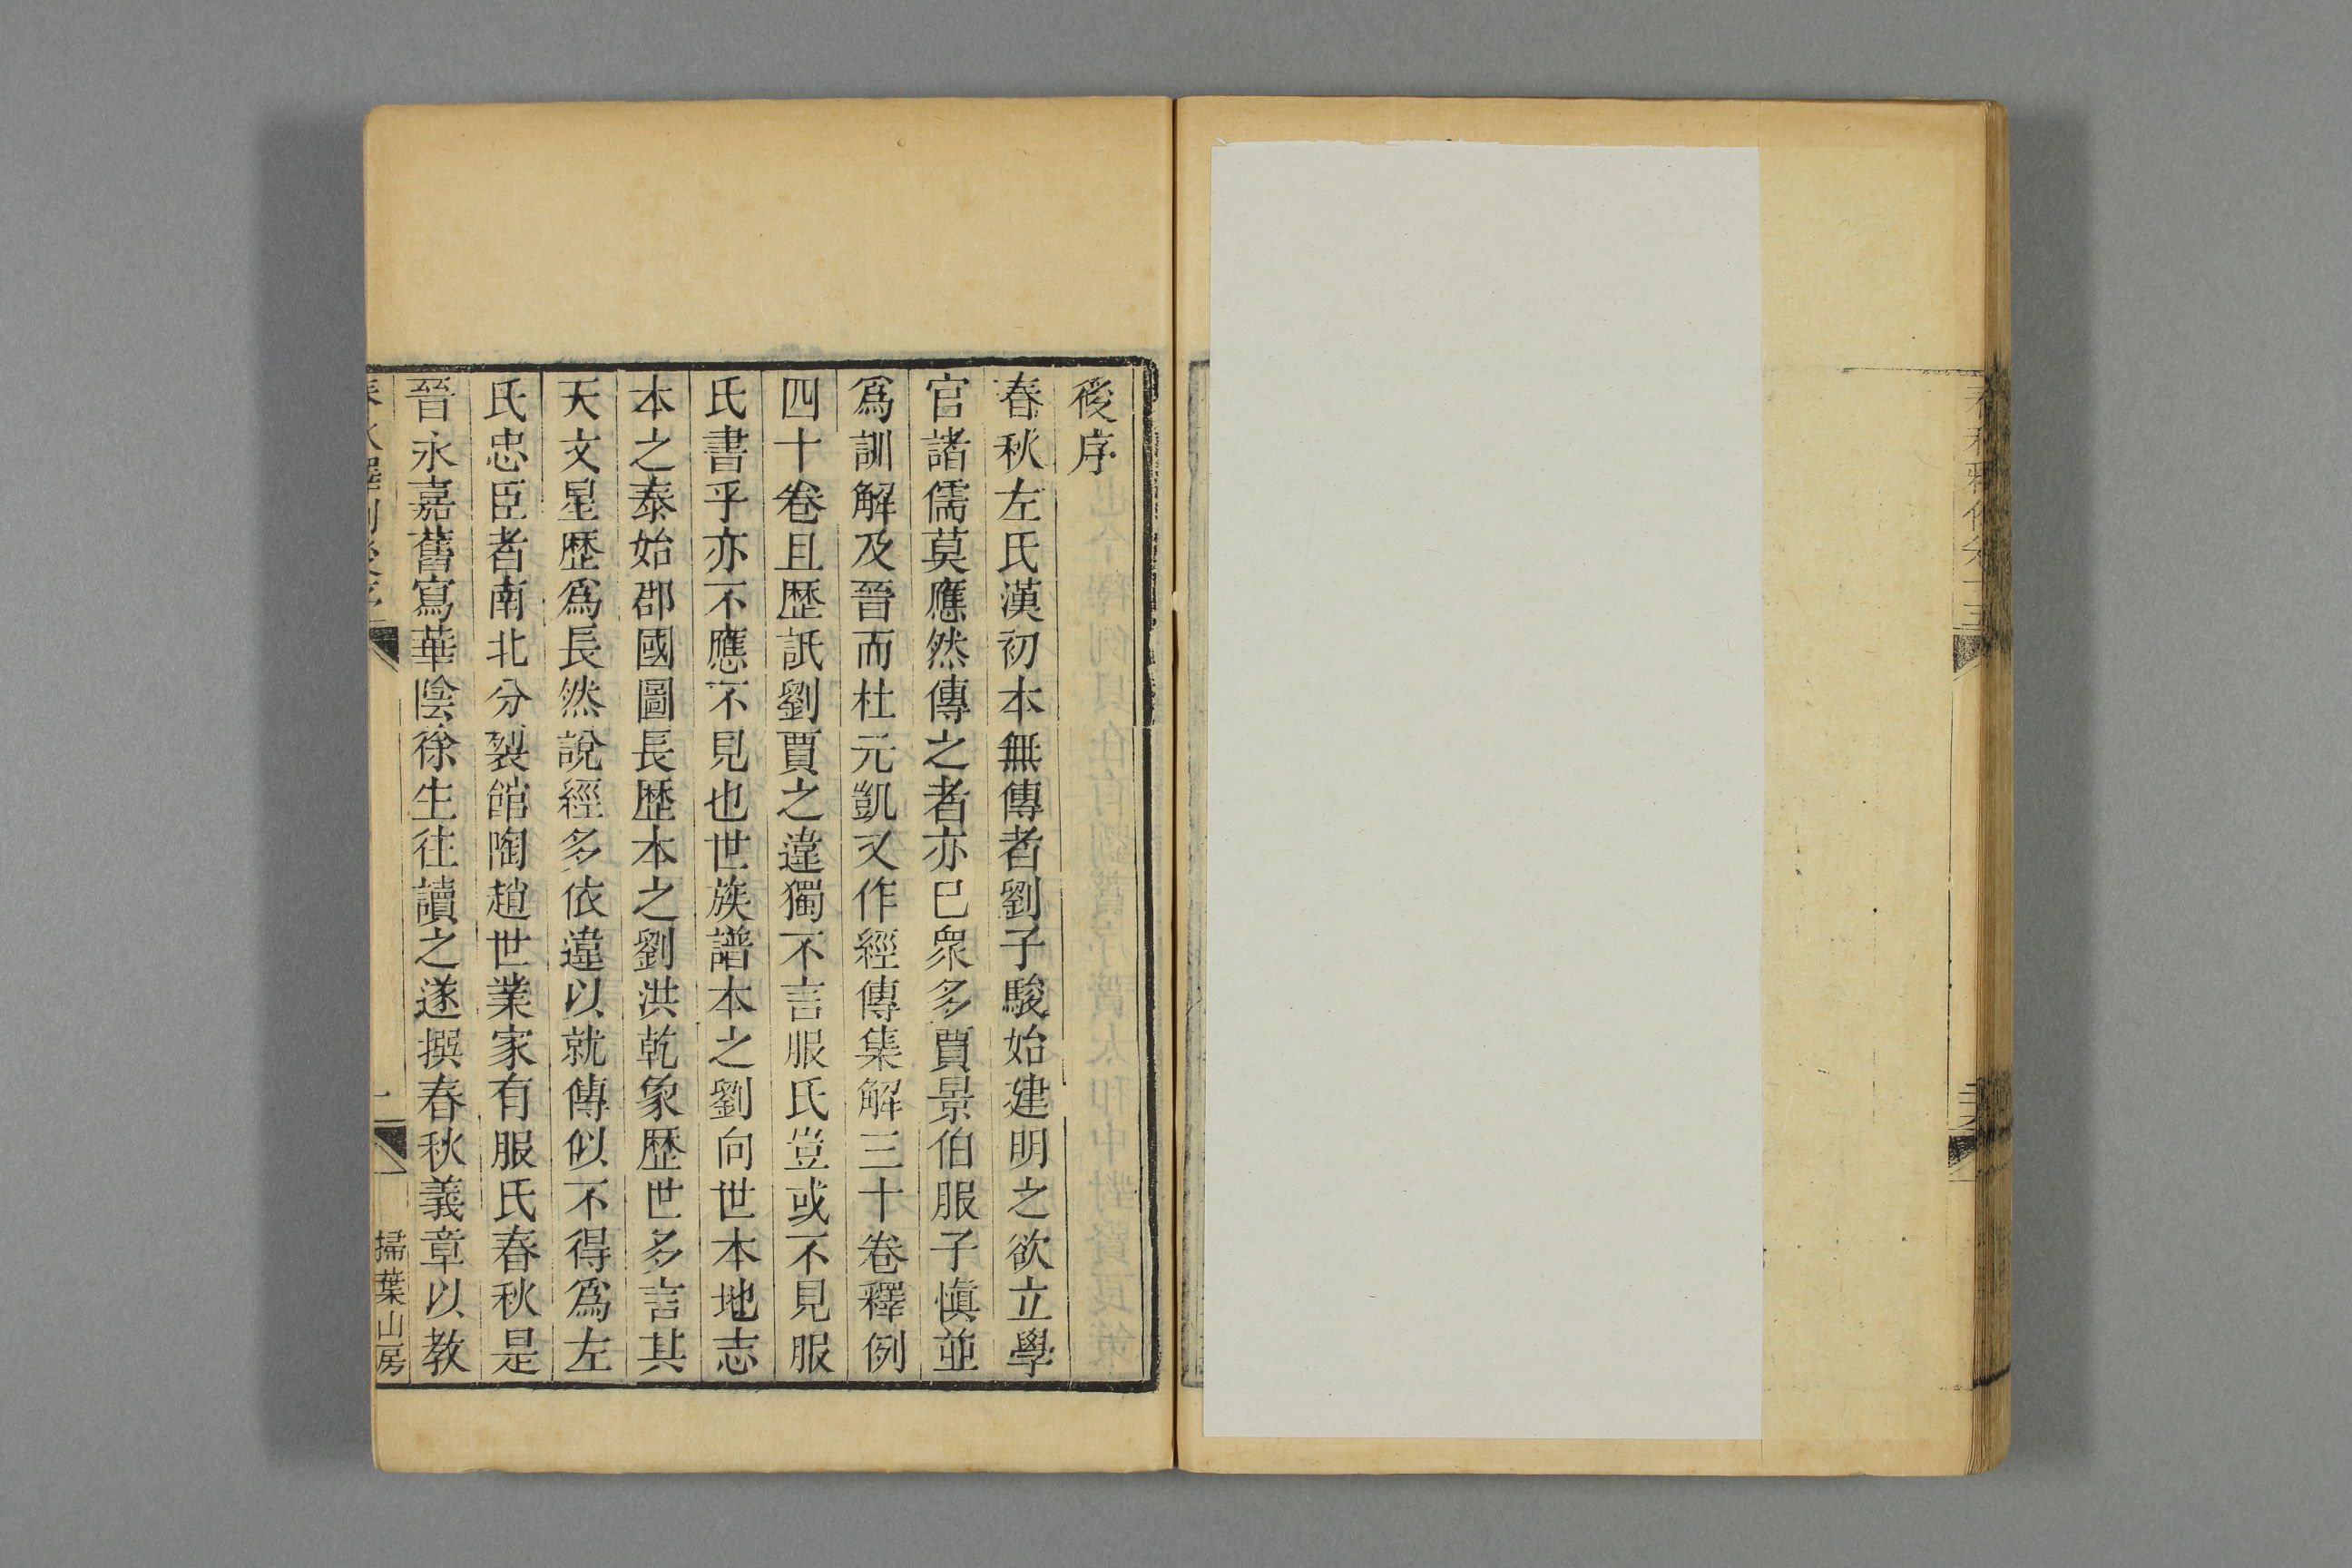 後序
春秋左氏漢初本無傳者劉子駿始建明之欲立學
官諸儒莫應然傳之者亦已衆多賈景伯服子愼並
爲訓解及晉而杜元凱又作經傳集解三十卷釋例
四十卷且歷詆劉賈之違獨不言服氏豈或不見服
氏書乎亦不應不見也世族譜本之劉向世本地志
本之泰始郡國圖長歷本之劉洪乾象歷世多言其
天文星歷爲長然說經多依違以就傳似不得爲左
氏忠臣者南北分裂館陶趙世業家有服氏春秋是
晉永嘉舊寫華陰徐生往讀之遂撰春秋義章以教
掃葉山房